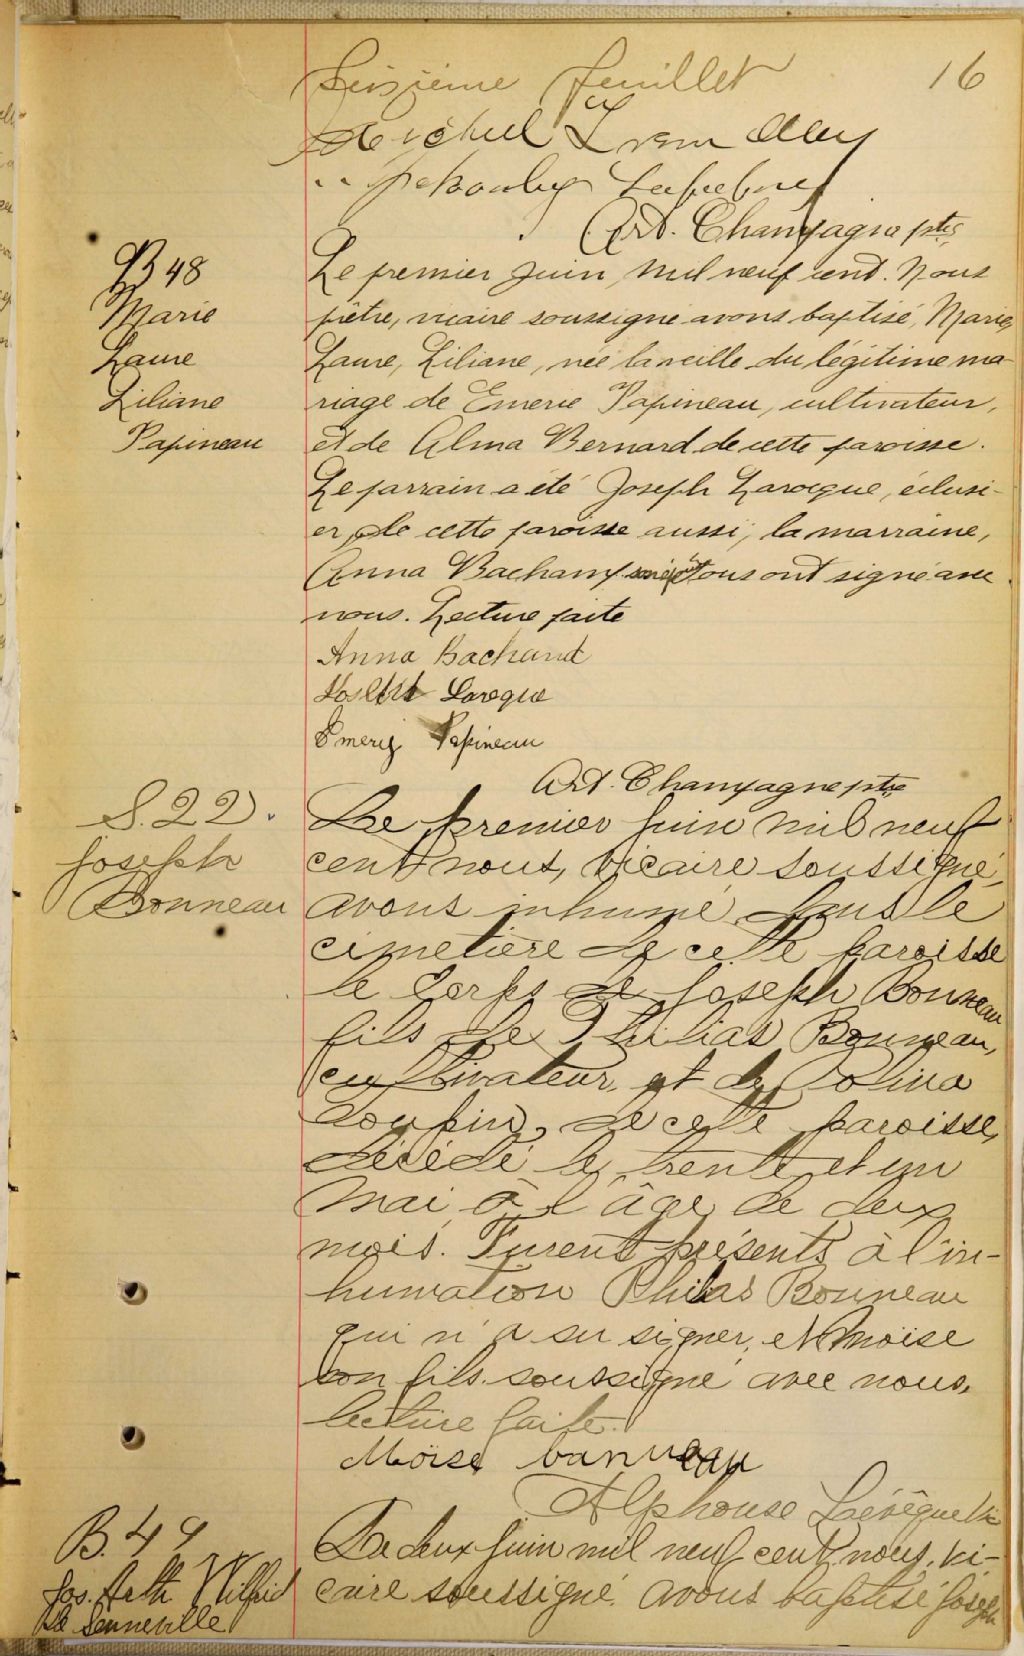 Seizième feuillet 16
Art. Champagne ptre
B 48
Marie
Laure
Liliane
Papineau
Le premier Juin, mil neuf cent. Nous
prêtre, vicaire soussigné avons baptisé, Marie,
Laure, Liliane, née la veille du légitime ma-
riage de Emerie Papineau, cultivateur,
et de Alma Bernard de cette paroisse.
Le parrain a été Joseph Larocque, éclusi-
er, de cette paroisse aussi, la marraine,
Anna Bachand tous ont signé avec
nous. Lecture faite
Anna Bachand
Joseph Laroque
Emery Papineau
Art. Champagne ptre
S. 22.
Joseph
Bonneau
Le premier juin mil neuf
cent nous, vicaire soussigné,
avons inhumé dans le
cimetière de cette paroisse
le corps de Joseph Bonneau
fils de Philias Bonneau,
cultivateur, et de
de cette paroisse,
décédé le trente et un
mai à l'âge de deux
mois. Furent présents à l'in-
humation Philias Bonneau
qui n'a su signer, et Moïse
son fils soussigné avec nous.
lecture faite.
Moïse banneau
Alphonse Lévêque Vic
B. 49
Jos. Arth Wilfrid
de Senneville
Le deux juin mil neuf cent, nous, vi-
caire soussigné avons baptisé Joseph